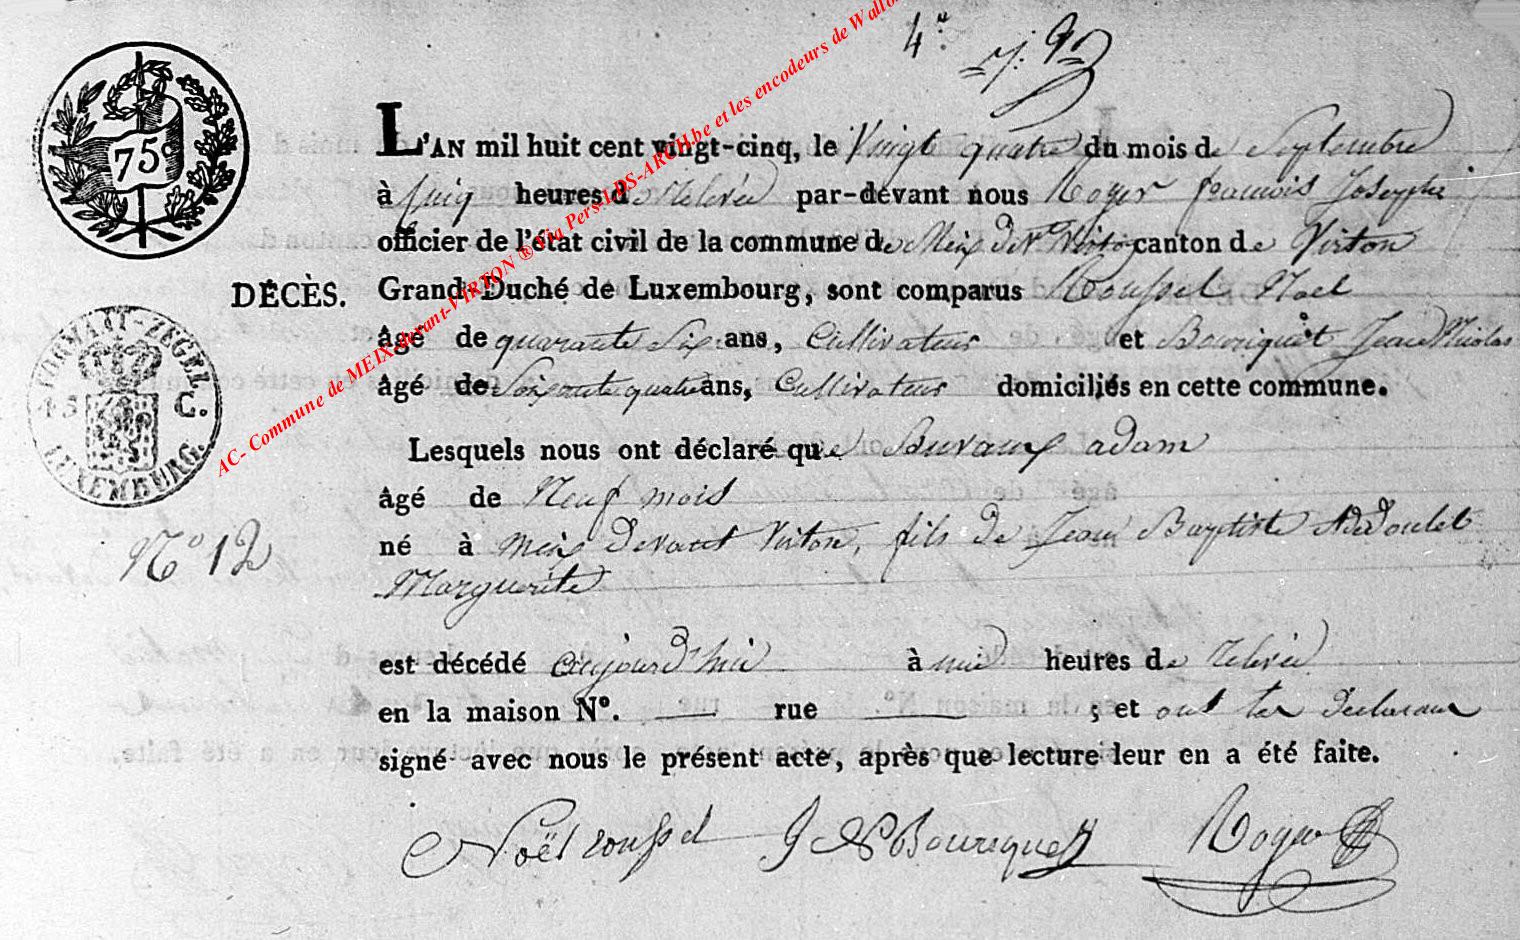 4.
75 C
L'AN mil huit cent vingt-cinq, le Vingt quatre du mois de Septembre
à cinq heures de Relevée par-devant nous Royer francois Josephe
officier de l'état civil de la commune de Meix dt Virton canton de Virton
DÉCÈS. Grand-Duché de Luxembourg, sont comparus Roussel Noel
âgé de quarante Six ans, Cultivateur et Bouriquet Jean Nicolas
âgé de Soixante quatre ans, Cultivateur domiciliés en cette commune.
FORMAAT-ZEGEL
45 C.
LUXEMBURG.
Lesquels nous ont déclaré que Buvaux adam
âgé de Neuf mois
né à Meix devant Virton, fils de Jean Baptiste et
Marguerite
No 12
est décédé aujourd'hui à heures de relevée
en la maison No. — rue — ; et ont les declarans
signé avec nous le présent acte, après que lecture leur en a été faite.
Noël roussel J N Bouriquet Royer
AC- Commune de MEIX-devant-VIRTON ® Via Pers-LDS-ARCH.be et les encodeurs de Wallo